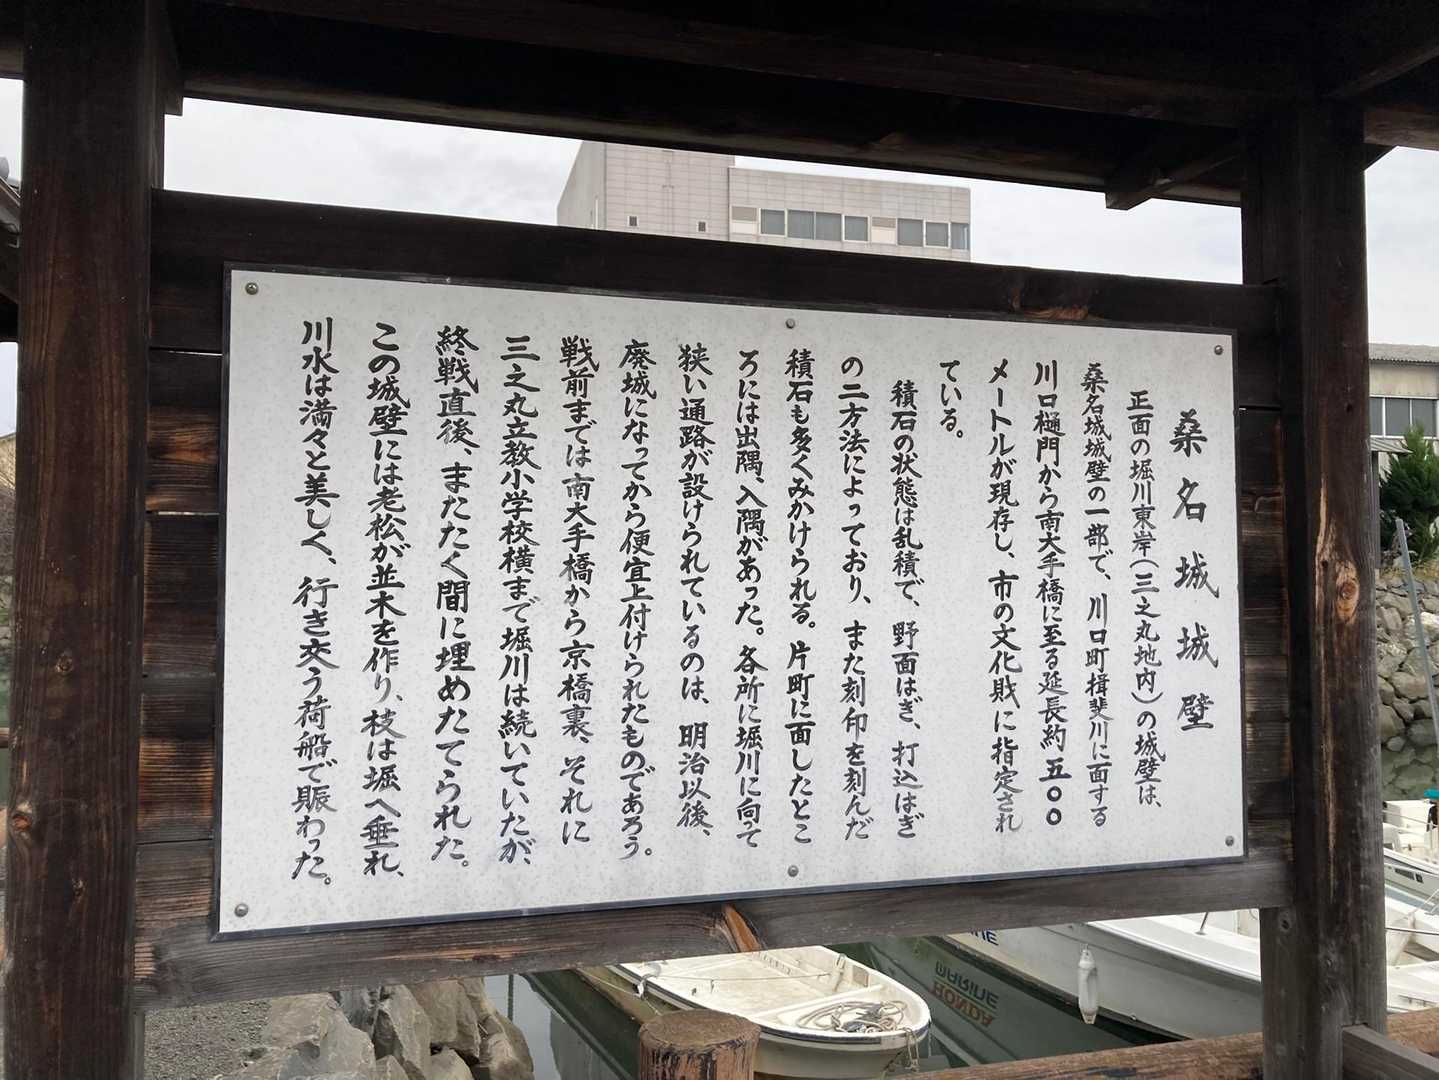 桑名城城壁
正面の堀川東岸(三之丸地内)の城壁は、
桑名城城壁の一部で、川口町揖斐川に面する
川口樋門から南大手橋に至る延長約五〇〇
メートルが現存し、市の文化財に指定され
ている。
積石の状態は乱積で、野面はぎ、打込はぎ
の二方法によっており、また刻印を刻んだ
積石も多くみかけられる。片町に面したとこ
ろには出隅、入隅があった。各所に堀川に向って
狭い通路が設けられているのは、明治以後、
廃城になってから便宜上付けられたものであろう。
戦前までは南大手橋から京橋裏、それに
三之丸立教小学校横まで堀川は続いていたが、
終戦直後、またたく間に埋めたてられた。
この城壁には老松が並木を作り、枝は堀へ垂れ、
川水は満々と美しく、行き交う荷船で賑わった。
HONDA
MARINE